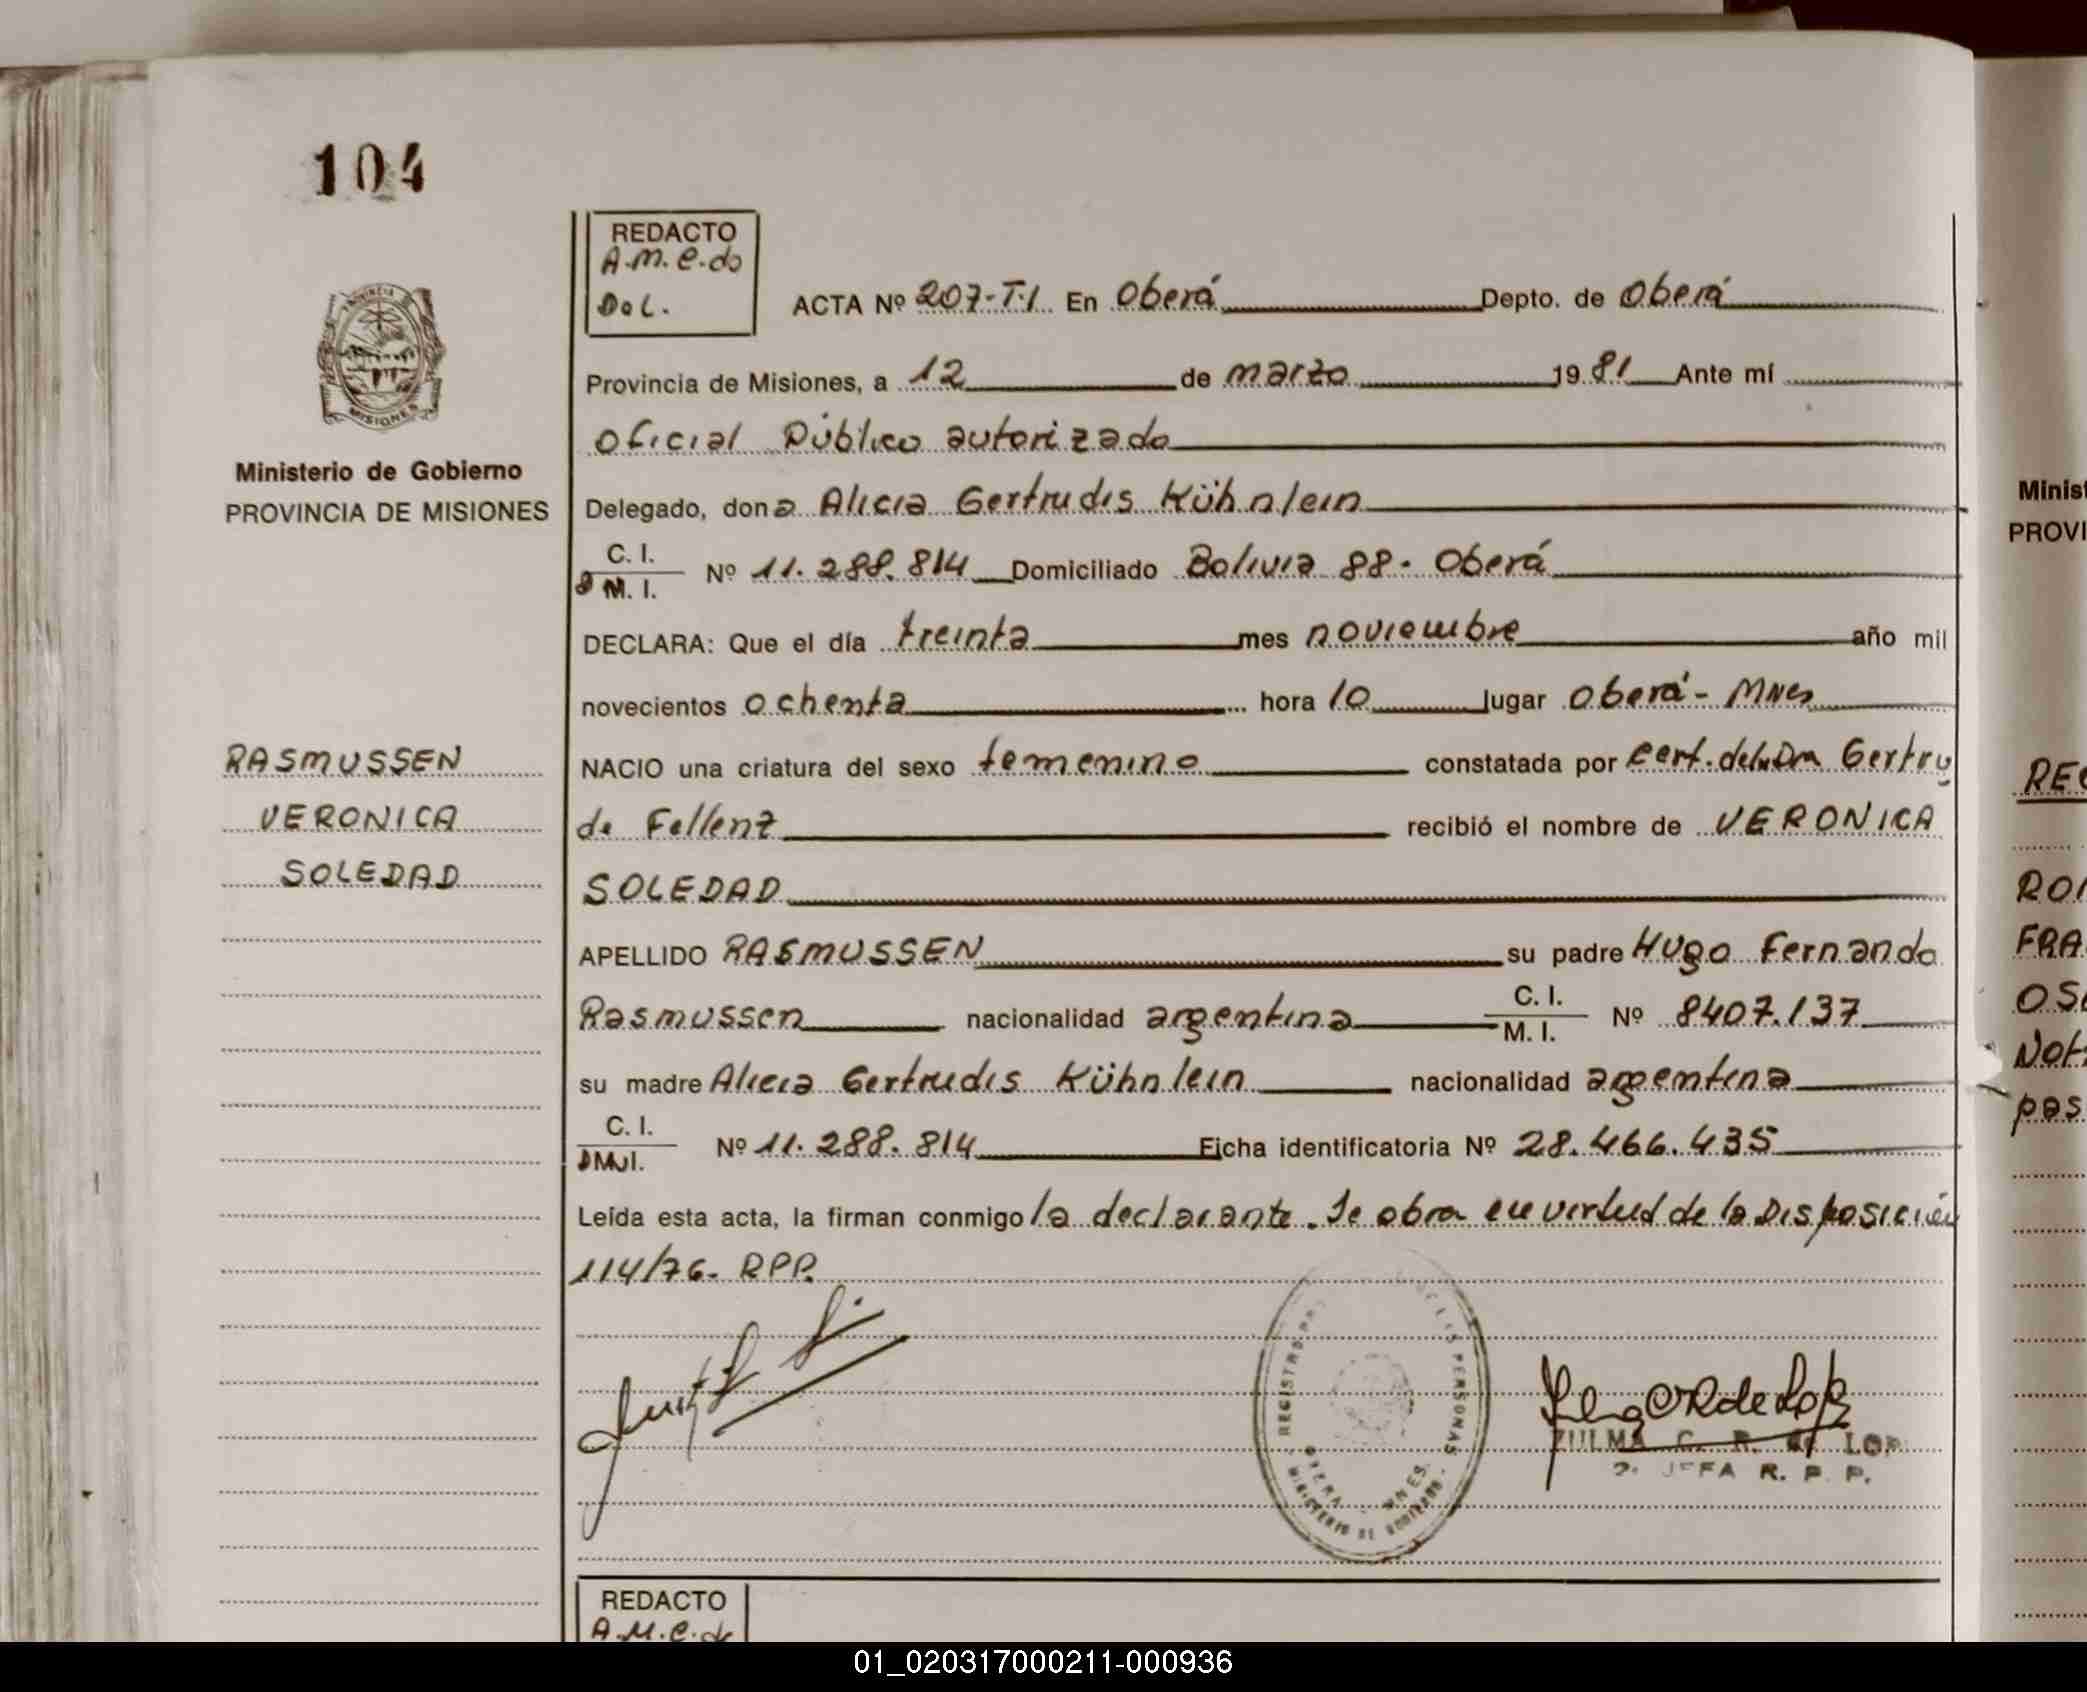 104
REDACTO
A.M.C. do
Dol.
ACTA Nº 207-T.I. En Oberá Depto. de Oberá
Provincia de Misiones, a 12 de marzo 1981 Ante mí
Oficial Público autorizado
Delegado, dona Alicia Gertrudis Kühnlein
C. I.
M. I.
Nº 11.288.814 Domiciliado Bolivia 88. Oberá
DECLARA: Que el día treinta mes noviembre año mil
novecientos ochenta hora 10 lugar Oberá - Mnes
NACIO una criatura del sexo femenino constatada por Cert. de la Dra Gertru
de Fellenz recibió el nombre de VERONICA
SOLEDAD
APELLIDO RASMUSSEN su padre Hugo Fernando
Rasmussen nacionalidad argentina C. I. M. I. Nº 8407.137
su madre Alicia Gertrudis Kühnlein nacionalidad argentina
C. I.
D M. I.
Nº 11.288.814 Ficha identificatoria Nº 28.466.435
Leída esta acta, la firman conmigo la declarante. Se obra en virtud de la Disposición
114/76. RPP.
REGISTRO PERSONAS
OBERA MNES.
MINISTERIO DE GOBIERNO
ZULMA C. R. de LOP
2ª JEFA R. P. P.
REDACTO
A.M.C. do
MISIONES
Ministerio de Gobierno
PROVINCIA DE MISIONES
RASMUSSEN
VERONICA
SOLEDAD
Minist
PROVI
REC
FRA
Not
pas
01_020317000211-000936